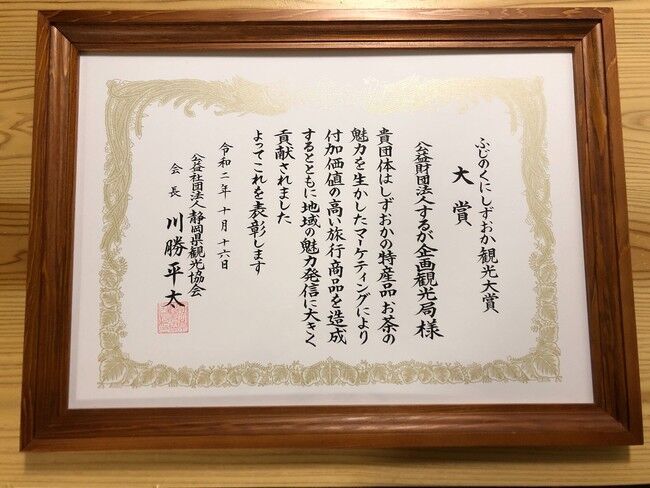 ふじのくにしずおか観光大賞
大賞
公益財団法人するが企画観光局様
貴団体はしずおかの特産品お茶の
魅力を生かしたマーケティングにより
付加価値の高い旅行商品を造成
するとともに地域の魅力発信に大きく
貢献されました
よってこれを表彰します
令和二年十月十六日
公益社団法人静岡県観光協会
会長 川勝平太